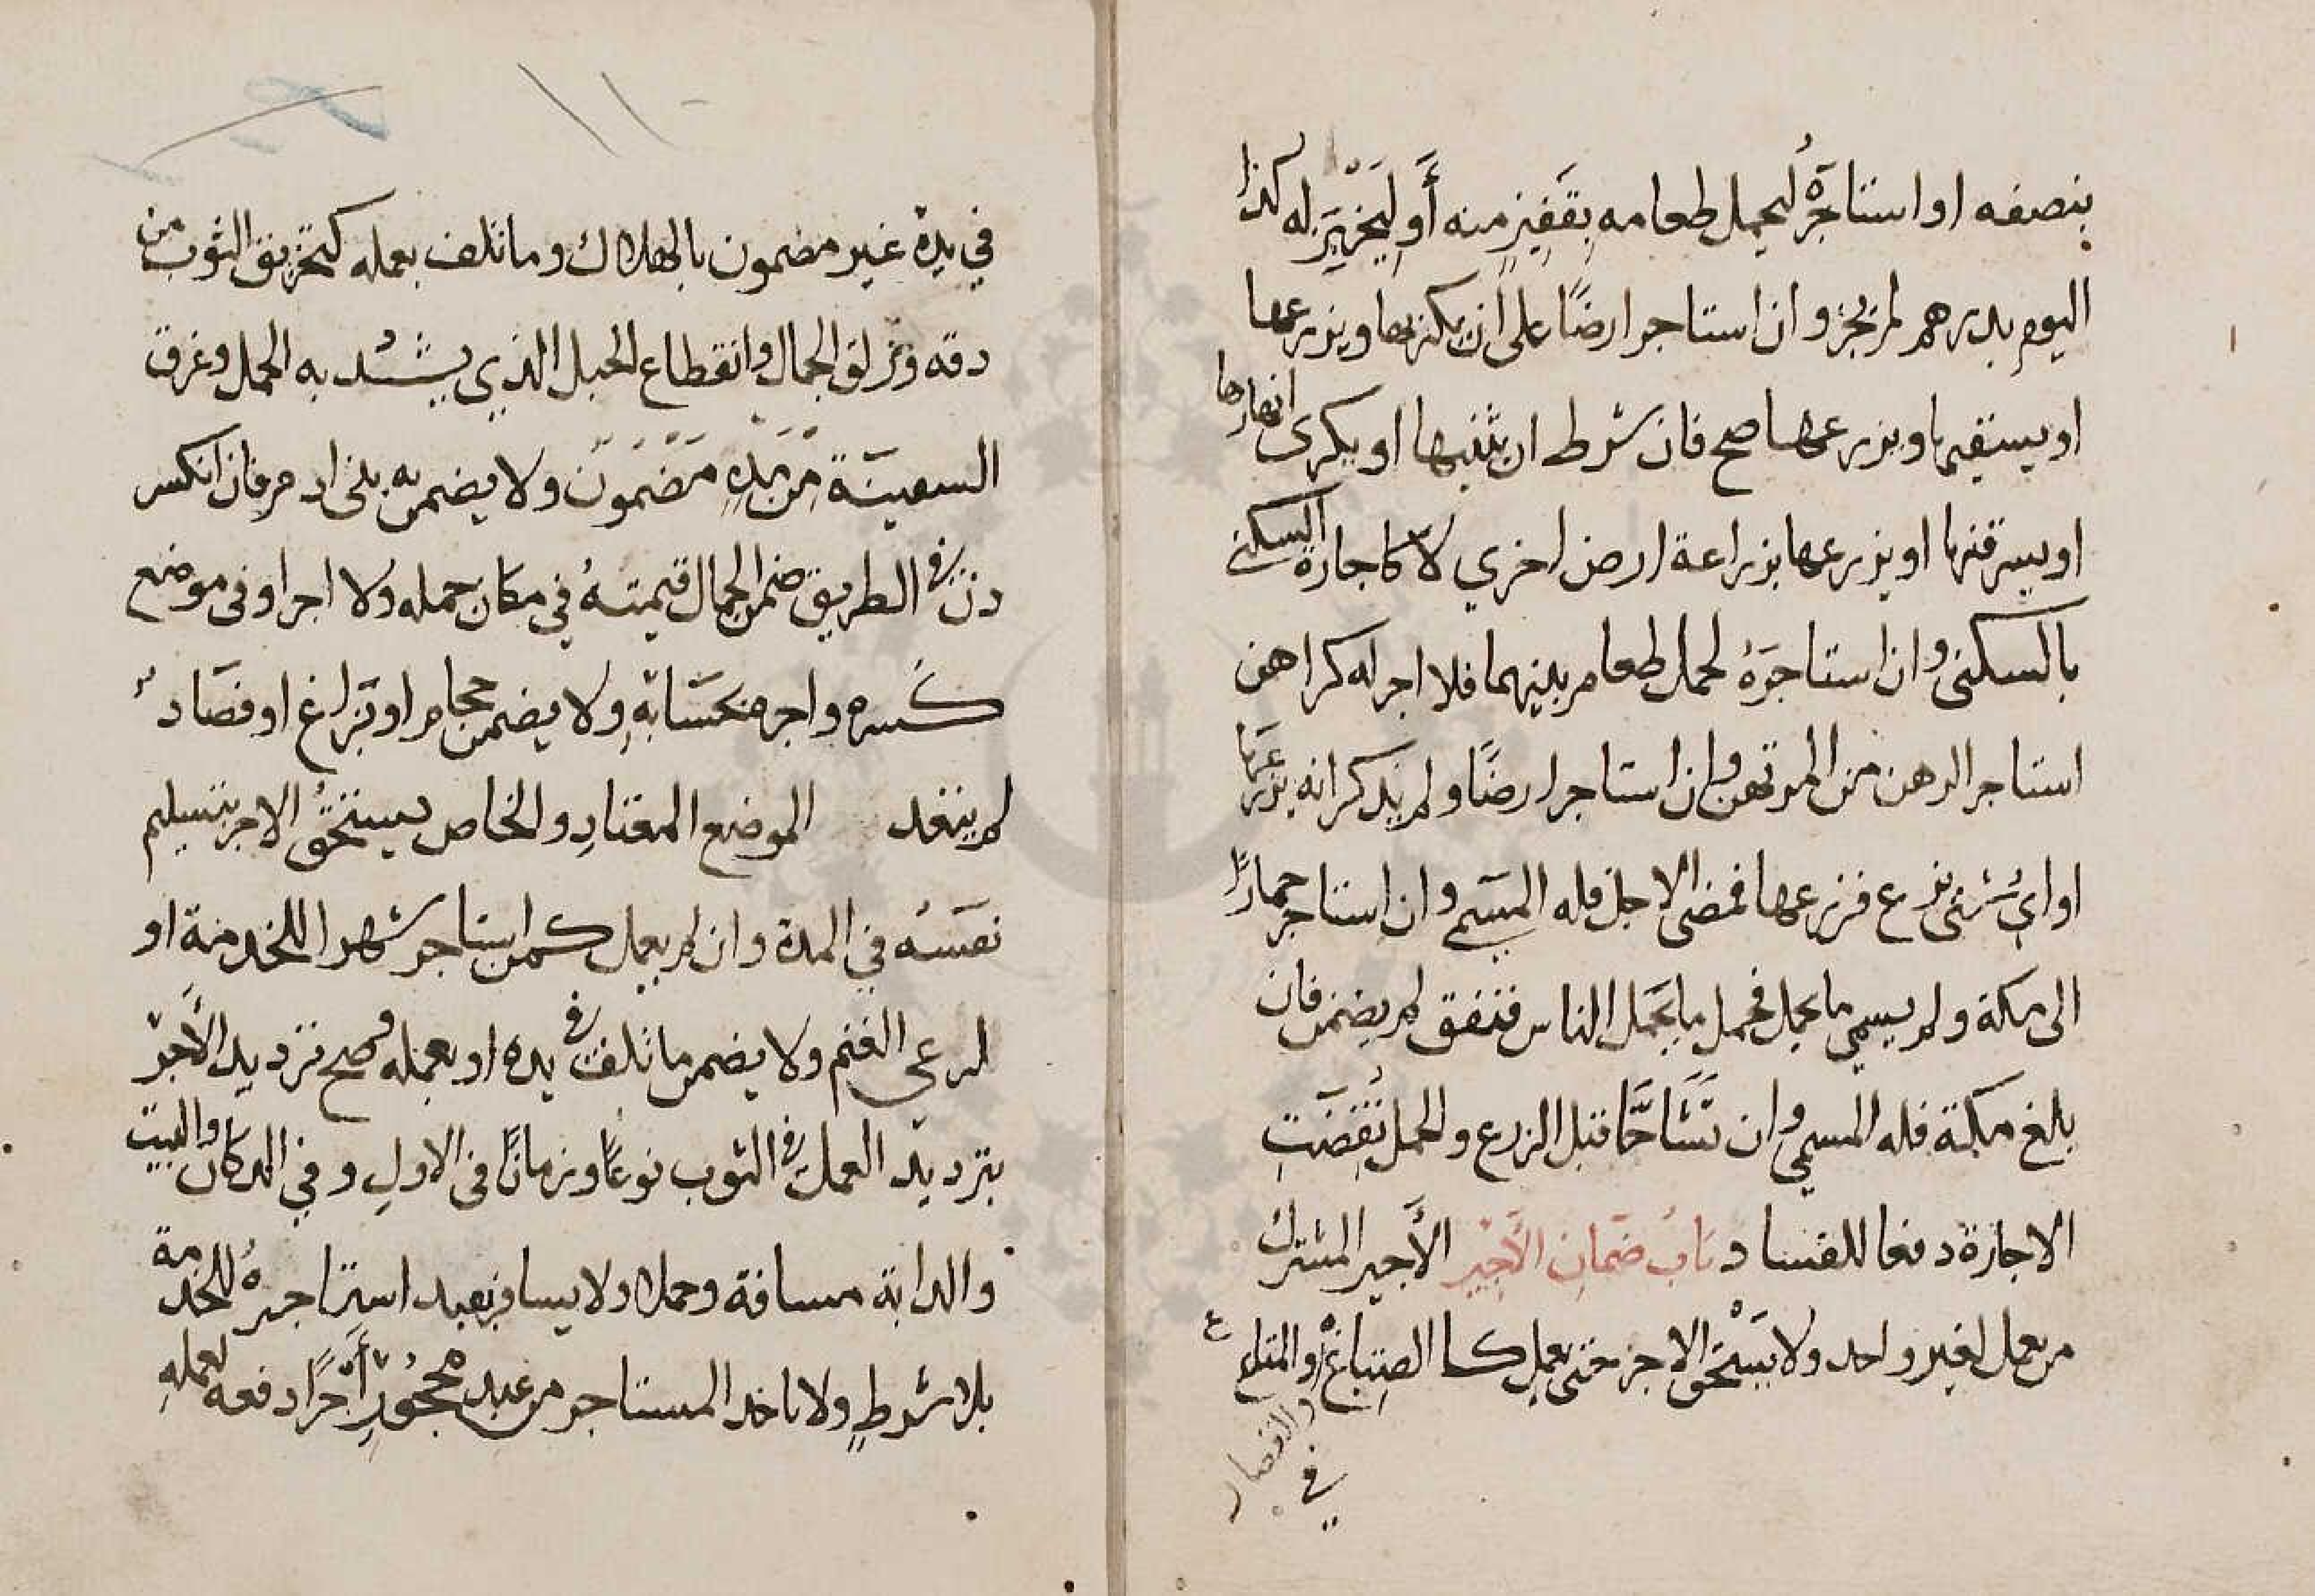 بنصفه او استاجرُه ليحمل طعامه بِقَفِيزٍ منه أَو لِيَخْبِزَ له كذا
اليوم بدرهم لم يجز وان استاجر ارضًا على ان يكربها ويزرعها
او يسقيها ويزرعها صح فان شرط ان يثنيها او يكرى انهارها
او يسرقنها او يزرعها بزراعة ارض اخري لا كاجارة السكنى
بالسكنى وان استاجرَهُ لحمل طعام بينهما فلا اجر له كراهن
استاجر الرهن من المرتهن وان استاجر ارضًا ولم يذكر انه يزرعها
او اي شئ يزرع فزرعها فمضى الاجل فله المسمى وان استاجر حمارًا
الى مكة ولم يسمي ما يحمل فحمل ما يحمل الناس فنفق لم يضمن فان
بلغ مكة فله المسمى وان تَشَاحَّا قبل الزرع والحمل نُقِضَتِ
الاجارة دفعا للفساد بَابُ ضَمَانِ الأَجِيْرِ الأَجير المشترك
من يعمل لغير واحد ولا يَسْتَحق الاجر حتى يعمل كا الصباغ والمتاع
والقصار
في
في يده غير مضمون بالهلاك وما تلف بعمله كتخزيق الثوب من
دقه وزلق الجمال وانقطاع الحبل الذي يشد به الحمل وغرق
السفينَة مِن مَدِّهِ مَضْمَوُن ولا يضمن به بني ادم فان انكسر
دن في الطريق ضمن الجمال قيمتهُ في مكان حمله ولا اجر او في موضع
كَسره واجره بحسَابهِ ولا يضمن حجام او بَزاغ او فصَاد
لم يتعد الموضع المعتادِ والخاص يستحقُ الاجر بتسليم
نفسَه في المدة وان لم يعمل كمن استاجر شهرا للخدمة او
لرعي الغنم ولا يضمن ما تلف في يده او بعمله وصح ترديد الأَجْر
بترديد العمل في الثوب نوعًا وزمانًا في الاولِ وفي الدكان والبيت
والدابة مسافة وحملا ولا يسافر بعبد استاجرهُ للخدمة
بلا شرطٍ ولا ياخد المستاجر من عبد محجُورٍ أَجْرًا دفعه لعملهِ